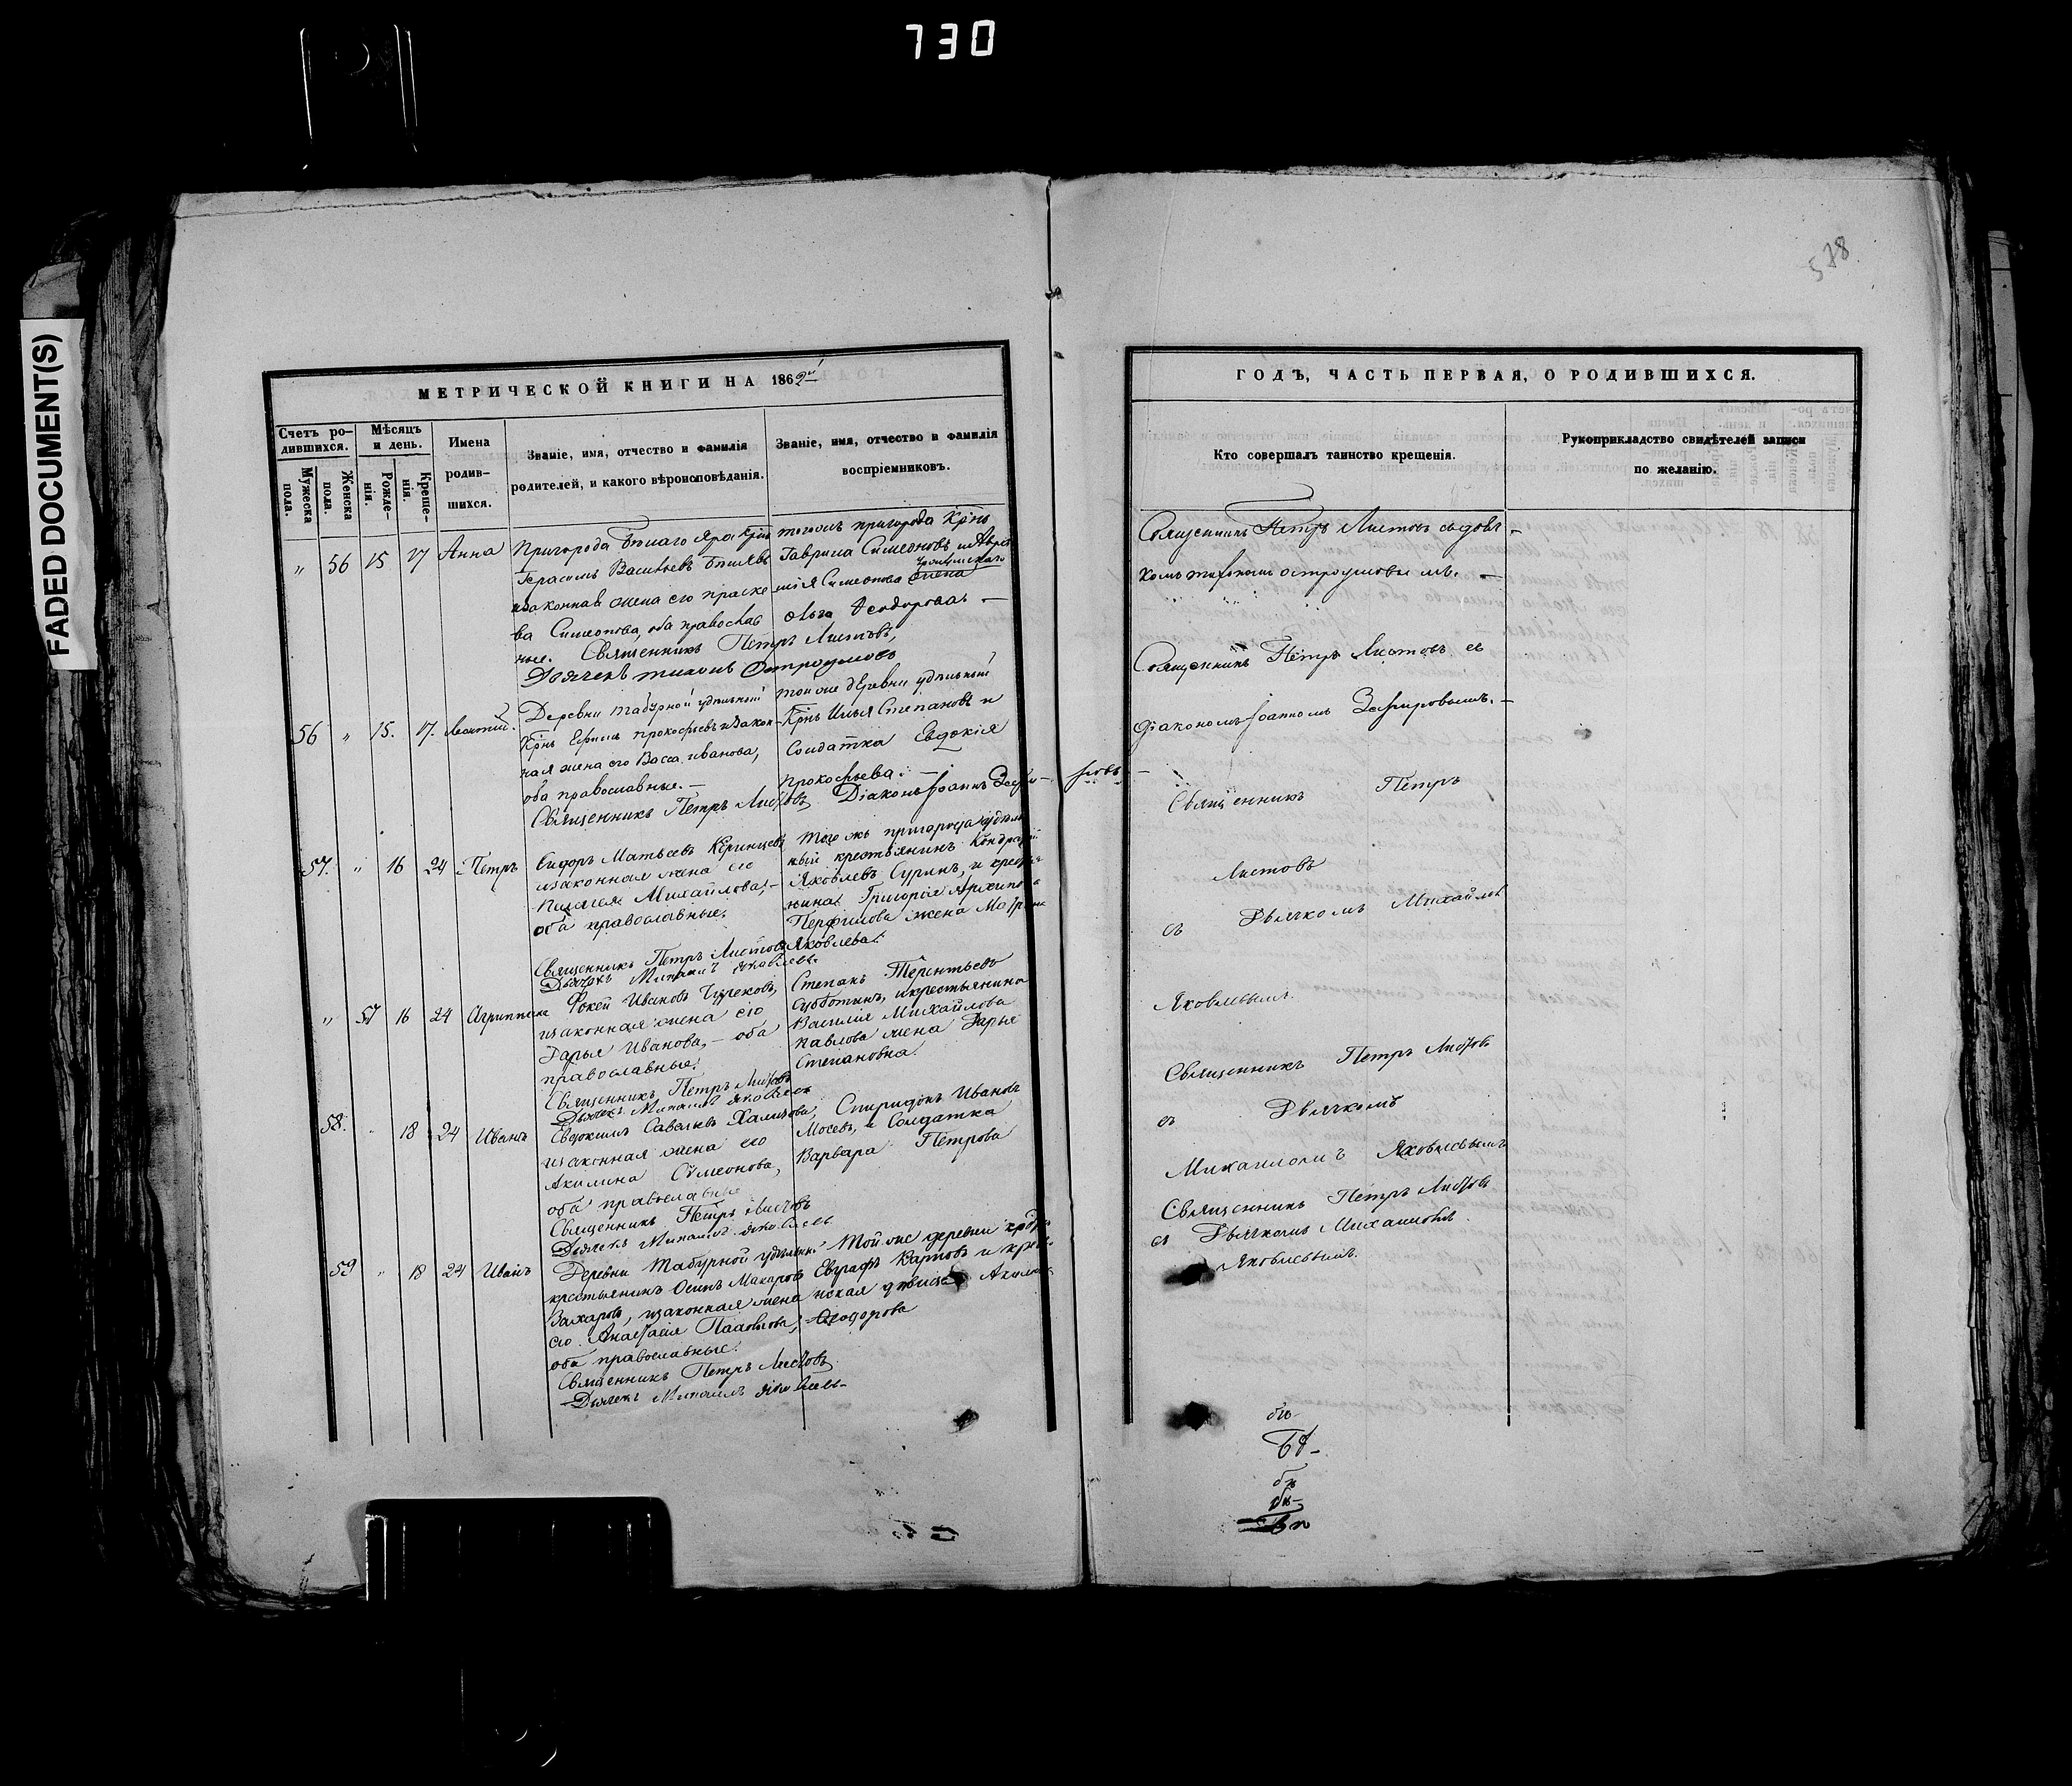 730
FADED DOCUMENT(S)
578
МЕТРИЧЕСКОЙ КНИГИ НА 1862й
Счетъ ро-
дившихся.
Мѣсяцъ
и день.
Имена
родив-
шихся.
Званіе, имя, отчество и фамилія
родителей, и какого вѣроисповѣданія.
Званіе, имя, отчество и фамилія
воспріемниковъ.
Мужеска
пола.
Женска
пола.
Рожде-
нія.
Креще-
нія.
" 56 15 17 Анна
Пригорода Бѣлаго Яра Крнъ
Герасимъ Васильевъ
изаконная жена его Праске
ва Симеонова, оба православ
ные. Священникъ Петръ Листовъ,
Дьячекъ Тихонъ Остроумовъ
пригорода Крнъ
Гавріила Симеоновъ
Симеонова жена
Ольга Ѳеодорова. —
56 " 15. 17. Леонтій.
Деревни Табурной удѣльный
Крнъ Ефимъ Прокофьевъ изакон-
ная жена его Васса Иванова,
оба православные. —
Священникъ Петръ Листовъ, Діаконъ Іоаннъ
Той же деревни удѣльный
Крнъ Илья Степановъ и
Солдатка Евдокія
Прокофьева. —
57. " 16 24 Петръ
Сидоръ Матвѣевъ
изаконная жена его
Пелагея Михайлова, —
оба православные.
Священникъ Петръ Листовъ
Дьячекъ Михаилъ Яковлевъ.
Того жъ пригорода удѣль
ный крестьянинъ Кондратій
Яковлевъ Суринъ, и кресть
нина Григорія Архипова
Перфилова жена Матрена
Яковлева.
" 57 16 24 Агриппина
Фокей Ивановъ
изаконная жена его
Дарья Иванова, — оба
православные.
Священникъ Петръ Листовъ
Дьячекъ Михаилъ Яковлевъ
Степанъ Терентьевъ
Субботинъ, икрестьянина
Василія Михайлова
Павлова жена Дарья
Степановна.
58. " 18 24 Иванъ
Евдокимъ Савельевъ
изаконная жена его
Акилина Симеонова,
оба православные
Священникъ Петръ Листовъ
Дьячекъ Михаилъ Яковлевъ
Спиридонъ Ивановъ
Мосевъ, и Солдатка
Варвара Петрова
59 " 18 24 Иванъ
Деревни Табурной удѣльный
крестьянинъ Осипъ Макаровъ
Захаровъ, изаконная жена
его Анастасія Павлова,
оба православные.
Священникъ Петръ Листовъ
Дьячекъ Михаилъ Яковлевъ
Той же деревни
Евграфъ Карповъ и
нская дѣвица
Ѳеодорова
ГОДЪ, ЧАСТЬ ПЕРВАЯ, О РОДИВШИХСЯ.
Кто совершалъ таинство крещенія.
Рукоприкладство свидѣтелей записи
по желанію.
Священникъ Петръ Листовъ съ дьяч —
комъ Тихономъ Остроумовымъ. —
Священникъ Петръ Листовъ съ
діакономъ Іоанномъ
Священникъ Петръ
Листовъ
съ Дьячкомъ Михаиломъ
Яковлевымъ.
Священникъ Петръ Листовъ
съ Дьячкомъ
Михаиломъ Яковлевымъ
Священникъ Петръ Листовъ
съ Дьячкомъ Михаиломъ
Яковлевымъ.